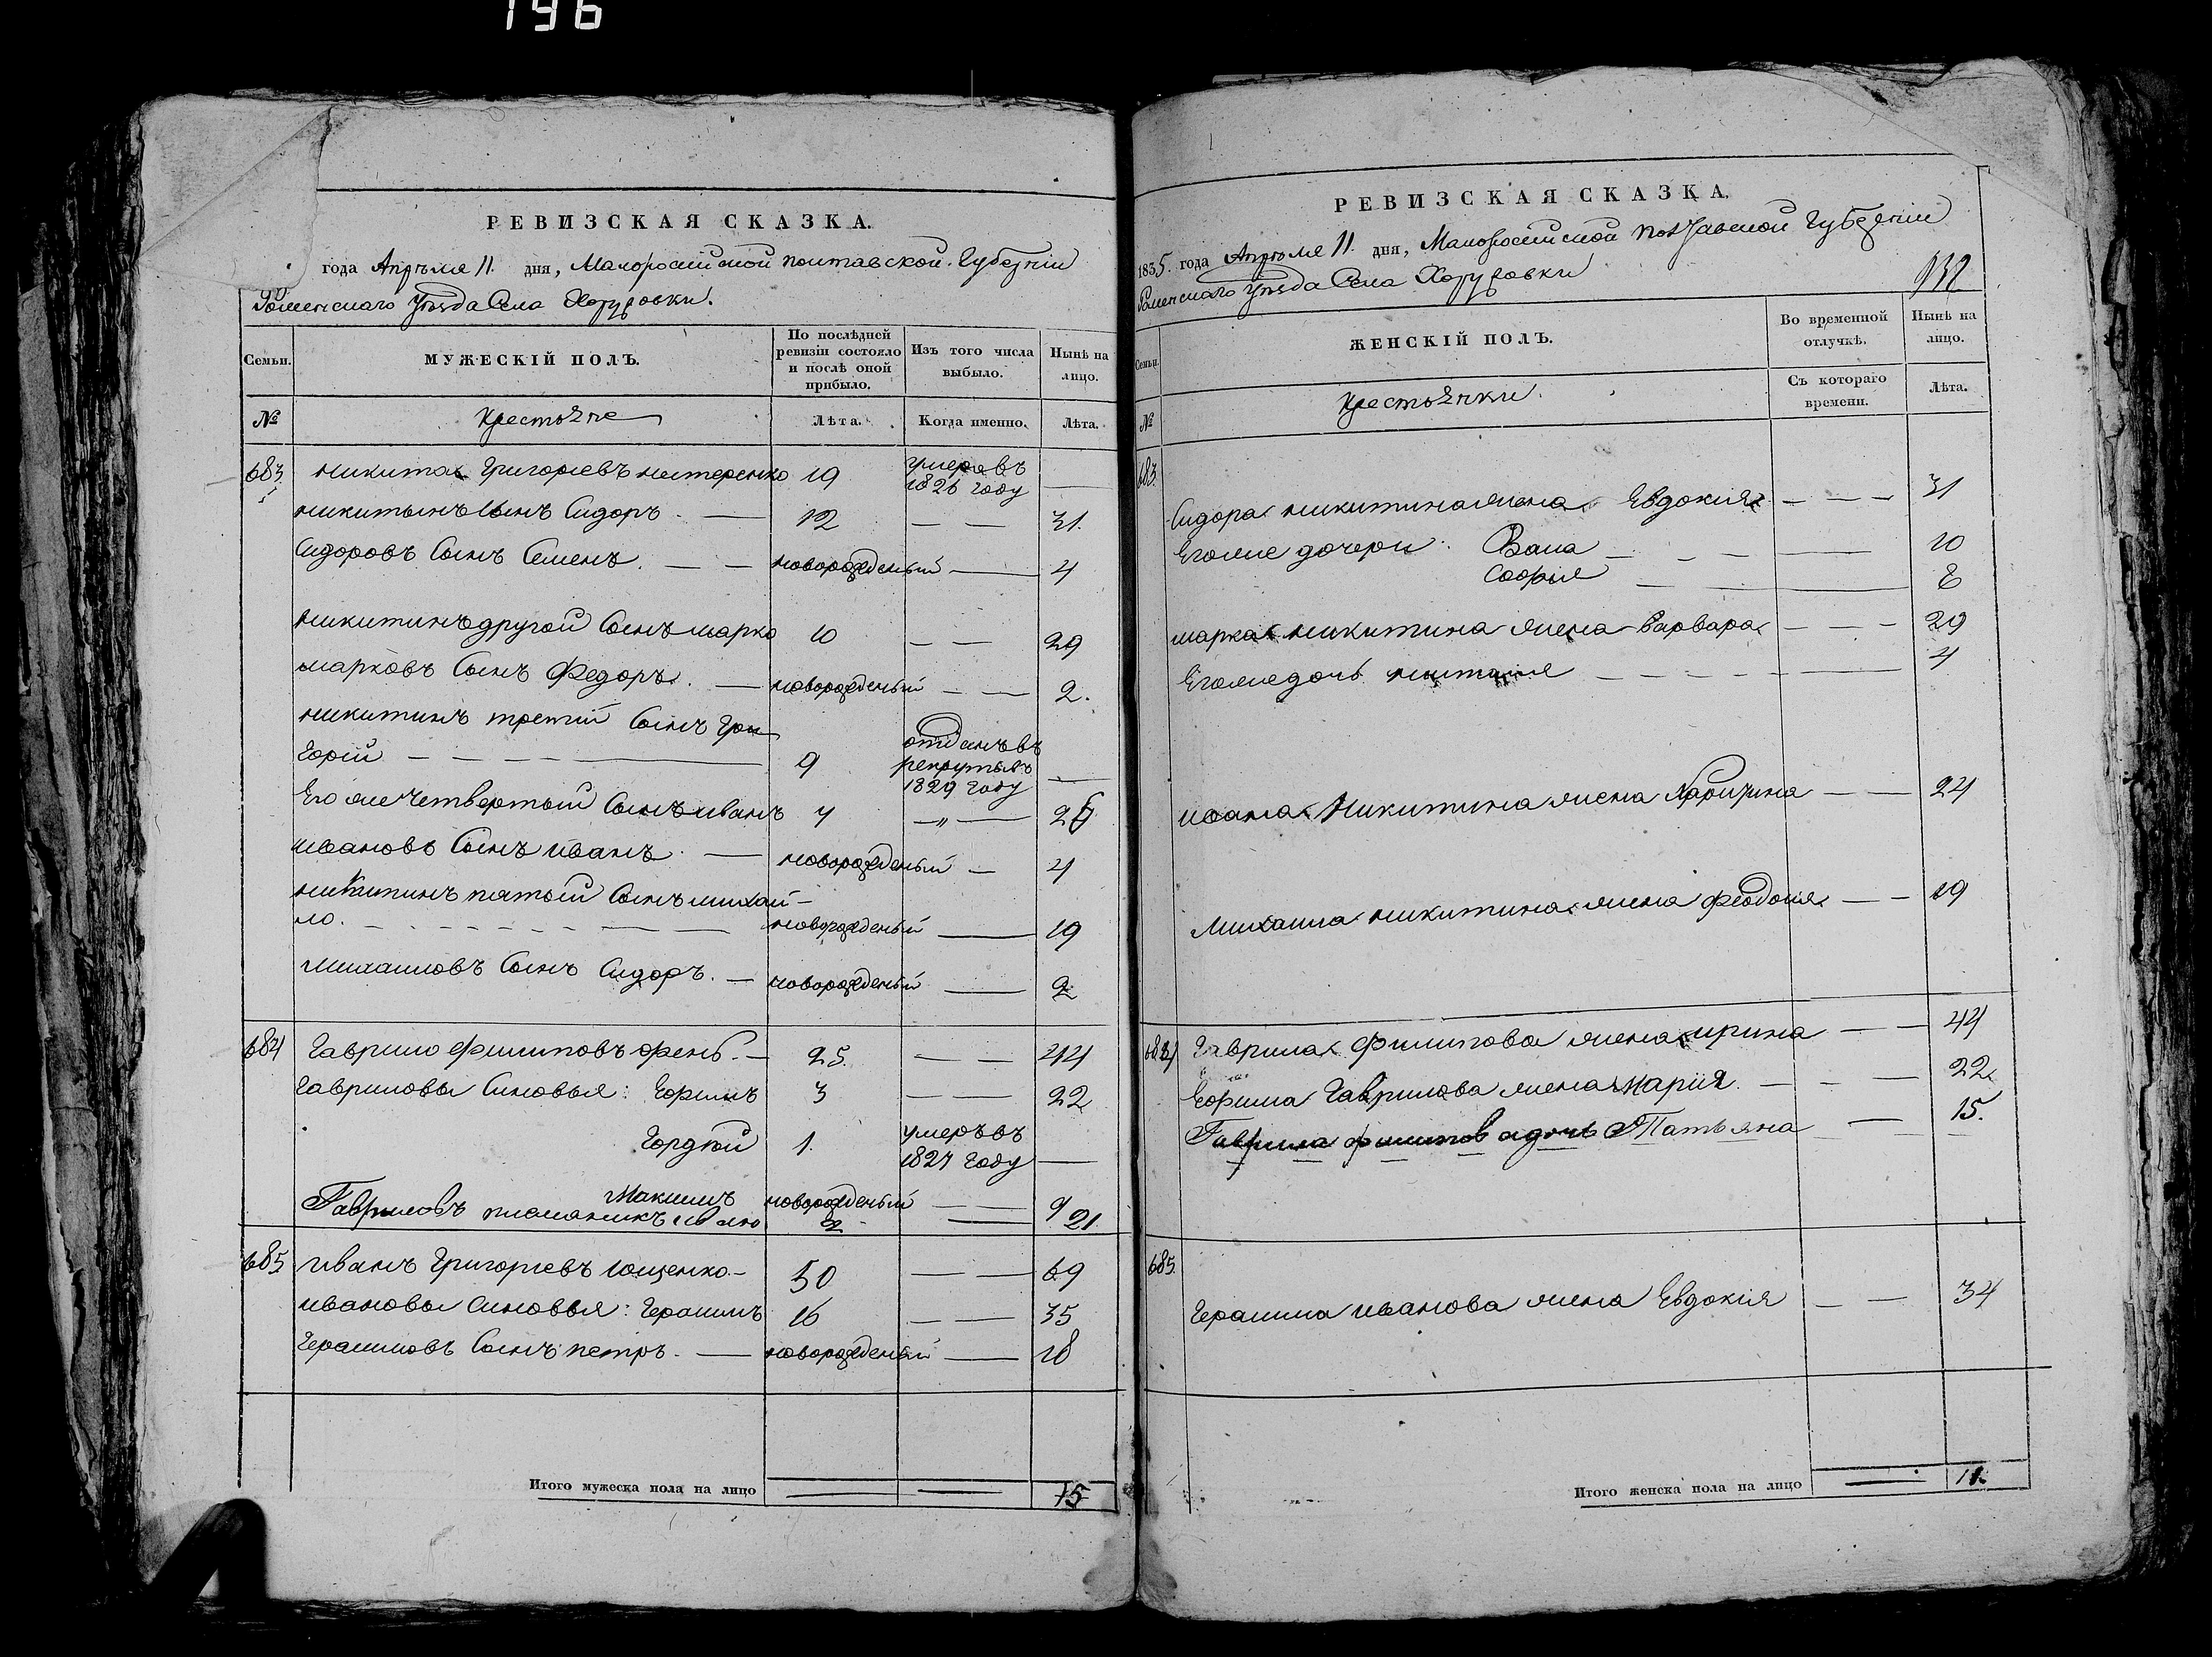 196
РЕВИЗСКАЯ СКАЗКА.
года Апрѣля 11. дня, Малоросийской Полтавской Губерніи
Роменскаго Уѣзда Села Хоружовки.
Семьи.
МУЖЕСКІЙ ПОЛЪ.
По послѣдней ревизіи состояло и послѣ оной прибыло.
Изъ того числа выбыло.
Нынѣ на лицо.
№
Крестьяне
Лѣта.
Когда именно.
Лѣта.
683. Никита Григориевъ Нестеренко 19 умеръ въ 1826 году —
Никитынъ Сынъ Сидоръ. — 12 — — 31.
Сидоровъ Сынъ Семенъ. — — новорожденый — 4
Никитинъ другой Сынъ Марко 10 — — 29
Марковъ Сынъ Федоръ. — новорожденый — — 2.
Никитинъ третий Сынъ Гри
горій — — — — 9 отданъ въ рекруты въ 1829 году —
Его же Четвертый Сынъ Иванъ 7 —„— 26
Ивановъ Сынъ Иванъ. — новорожденый — 4
Никитинъ пятый Сынъ Михай-
ло. — — — новорожденый — 19
Михаиловъ Сынъ Сидоръ. — новорожденый — 2
684 Гаврило Филиповъ Фень. — 25. — — 44
Гавриловы Синовья: Ефимъ 3 — — 22
Гордѣй 1. умеръ въ 1827 году —
Максимъ новорожденый — — 9
Гавриловъ племяникъ Ивано 2 — 21
685 Иванъ Григориевъ Ющенко. — 50 — — 69
Ивановы Синовья: Герасимъ 16 — — 35
Герасимовъ Сынъ Петръ. — новорожденый — 18
Итого мужеска пола на лицо 15
РЕВИЗСКАЯ СКАЗКА.
1835. года Апрѣля 11. дня, Малоросийской Полтавской Губерніи
Роменскаго Уѣзда Села Хоружовки
932
Семьи.
ЖЕНСКІЙ ПОЛЪ.
Во временной отлучкѣ.
Нынѣ на лицо.
№
Крестьянки.
Съ котораго времени.
Лѣта.
683.
Сидора Никитина жена Евдокия — — — 31
Его же дочери: 10
Софья — 8
Марка Никитина жена Варвара — — — 29
Его же дочь — — — 4
Ивана Никитина жена — — 24
Михаила Никитина жена Феодосия — — 19
684 Гаврила Филипова жена Ирина — — 44
Ефима Гаврилова жена Мария. — — — 22
Гаврила Филипова дочь Татьяна — 15.
685.
Герасима Иванова жена Евдокия — — 34
Итого женска пола на лицо 11.